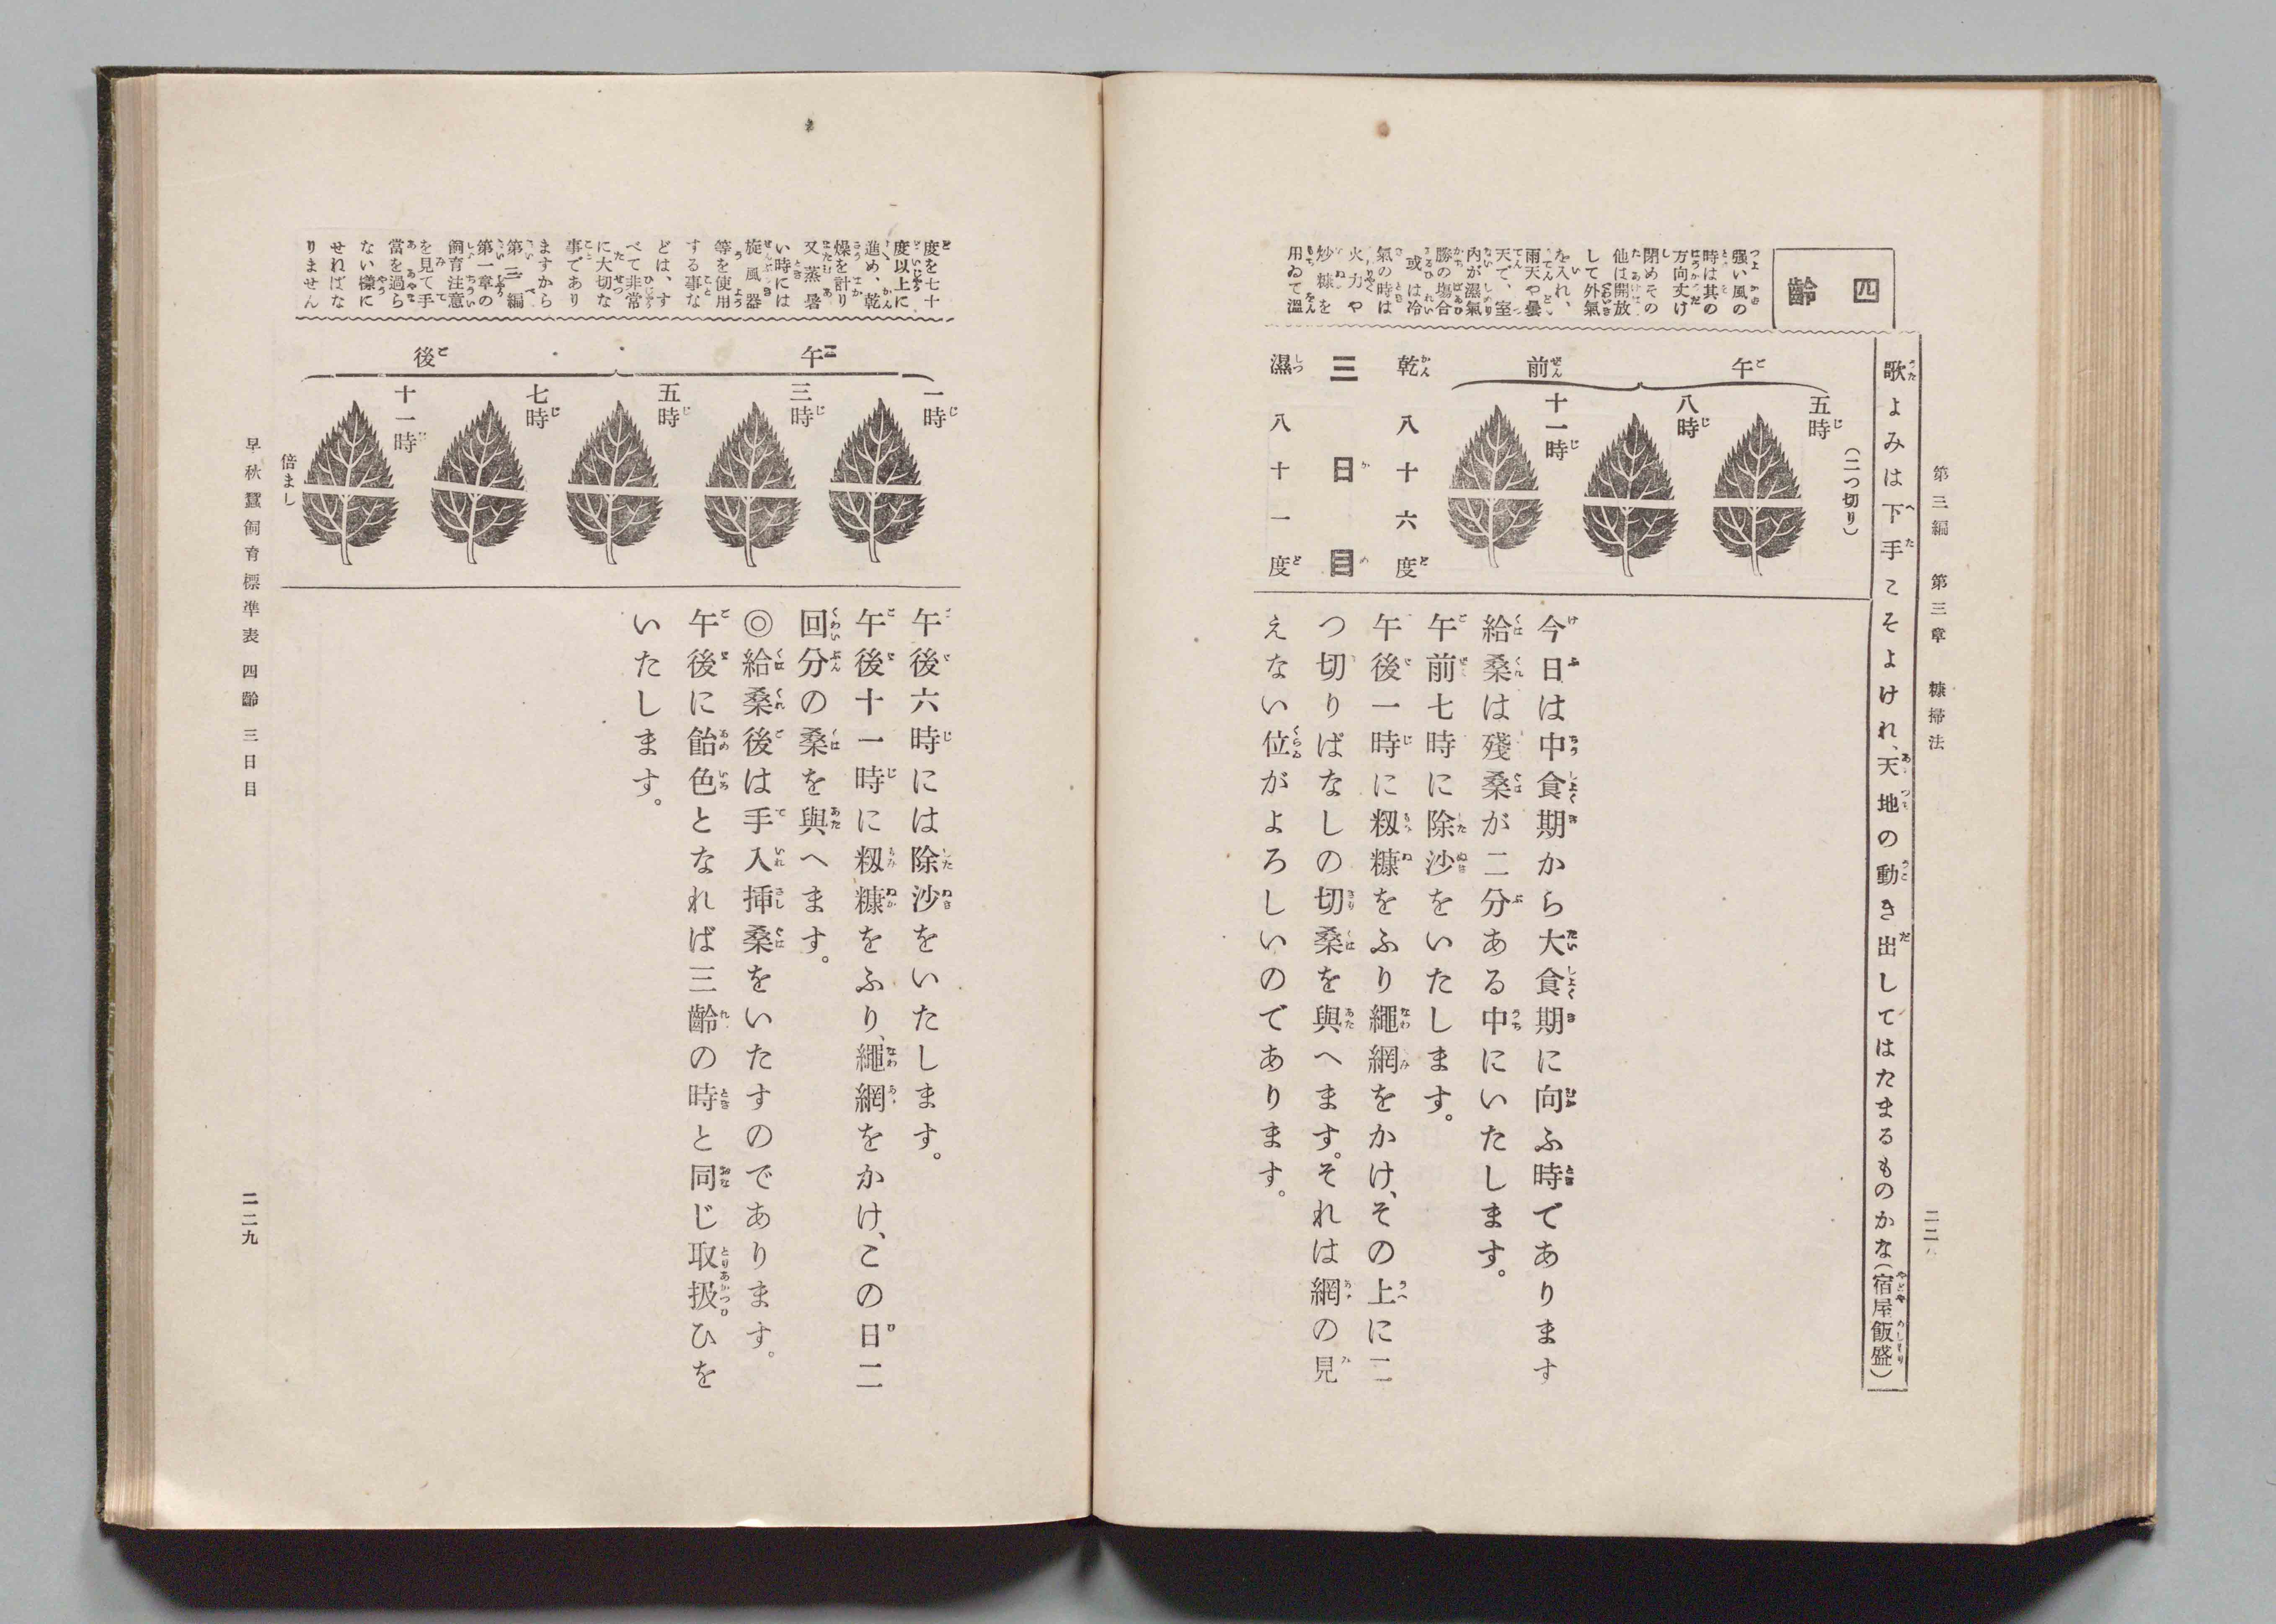 第三編　第三章　糠掃法
歌よみは下手こそよけれ、天地の動き出してはたまるものかな(宿屋飯盛)
四齡
强い風の
時は其の
方向丈け
閉めその
他は開放
して外氣
を入れ、
雨天や曇
天で、室
內が濕氣
勝の塲合
或は冷
氣の時は
火力や
炒糠を
用ゐて溫
(二つ切り)
午前
五時
八時
十一時
乾　八十六度
三日目
濕　八十一度
今日は中食期から大食期に向ふ時であります
給桑は殘桑が二分ある中にいたします。
午前七時に除沙をいたします。
午後一時に籾糠をふり繩網をかけ、その上に二
つ切りぱなしの切桑を與へます。それは網の見
えない位がよろしいのであります。
度を七十
度以上に
進め、乾
燥を計り
又蒸暑
い時には
旋風器
等を使用
する事な
どは、す
べて非常
に大切な
事であり
ますから
第三編
第一章の
飼育注意
を見て手
當を過ら
ない樣に
せねばな
りません
午後
一時
三時
五時
七時
十一時
倍まし
午後六時には除沙をいたします。
午後十一時に籾糠をふり、繩網をかけ、この日二
回分の桑を與へます。
◎給桑後は手入挿桑をいたすのであります。
午後に飴色となれば三齡の時と同じ取扱ひを
いたします。
早秋蠶飼育標準表　四齡　三日目
二二九